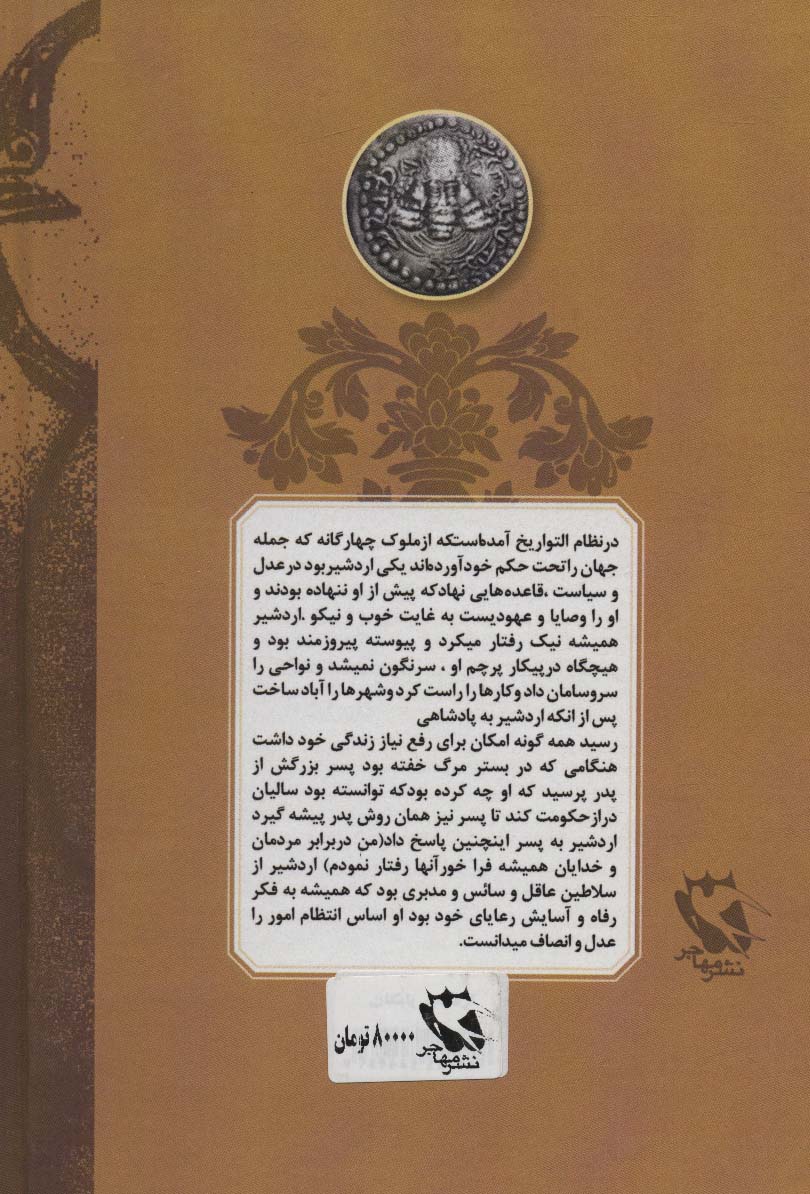 درنظام التواریخ آمده‌است‌که ازملوک چهارگانه که جمله
جهان راتحت حکم خودآورده‌اند یکی اردشیربود درعدل
و سیاست ،قاعده‌هایی نهادکه پیش از او ننهاده بودند و
او را وصایا و عهودیست به غایت خوب و نیکو .اردشیر
همیشه نیک رفتار میکرد و پیوسته پیروزمند بود و
هیچگاه درپیکار پرچم او ، سرنگون نمیشد و نواحی را
سروسامان داد وکارها را راست کرد وشهرها را آباد ساخت
پس از انکه اردشیر به پادشاهی
رسید همه گونه امکان برای رفع نیاز زندگی خود داشت
هنگامی که در بستر مرگ خفته بود پسر بزرگش از
پدر پرسید که او چه کرده بودکه توانسته بود سالیان
درازحکومت کند تا پسر نیز همان روش پدر پیشه گیرد
اردشیر به پسر اینچنین پاسخ داد(من دربرابر مردمان
و خدایان همیشه فرا خورآنها رفتار نمودم) اردشیر از
سلاطین عاقل و سائس و مدبری بود که همیشه به فکر
رفاه و آسایش رعایای خود بود او اساس انتظام امور را
عدل و انصاف میدانست.
نشر مهاجر
۸۰۰۰۰ تومان
نشر مهاجر